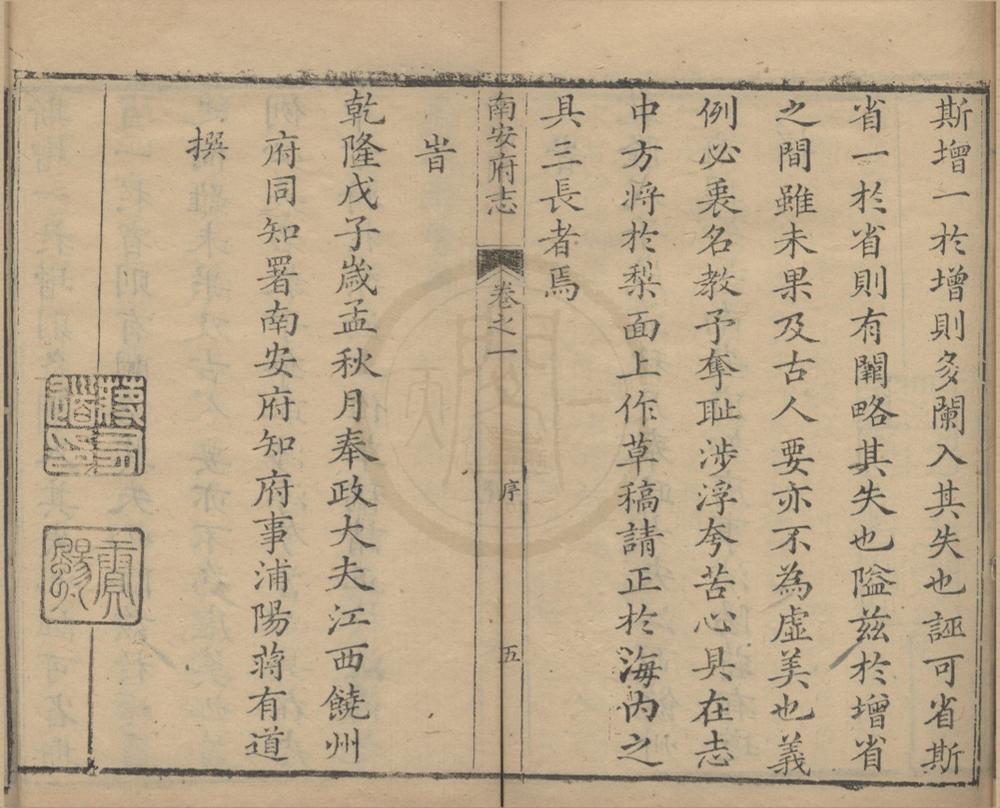 斯增一於增則多闌入其失也誣可省斯
省一於省則有闕略其失也隘兹於增省
之間雖未果及古人要亦不為虛美也義
例必衷名教予奪耻涉浮夸苦心具在志
中方將於梨面上作草稿請正於海內之
具三長者焉
南安府志
卷之一
序
五
旹
乾隆戊子歲孟秋月奉政大夫江西饒州
府同知署南安府知府事浦陽蔣有道
撰
蔣有道印